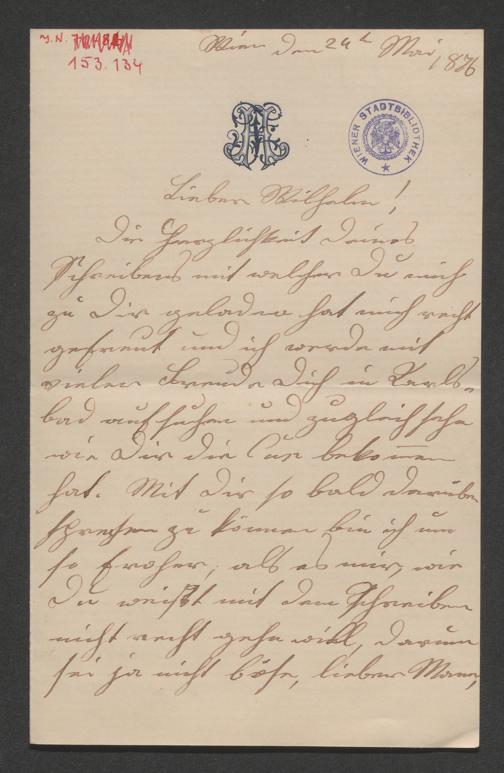 J. N.
153.134
Wien den 24t Mai
1876
WIENER STADTBIBLIOTHEK
Lieber Wilhelm!
Die Herzlichkeit Deines
Schreibens mit welcher Du mich
zu Dir geladen hat mich recht
gefreut und ich werde mit
vielen Freude Dich in Karls-
bad aufsuchen und zugleich sehn
wie Dir die Cur bekommen
hat. Mit Dir so bald darüber
sprechen zu können bin ich um
so froher, als es mir, wie
Du weißt mit dem Schreiben
nicht recht gehn will, darum
sei ja nicht böse, lieber Mann,